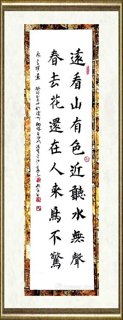 遠看山有色近聽水無聲
春去花還在人來鳥不驚